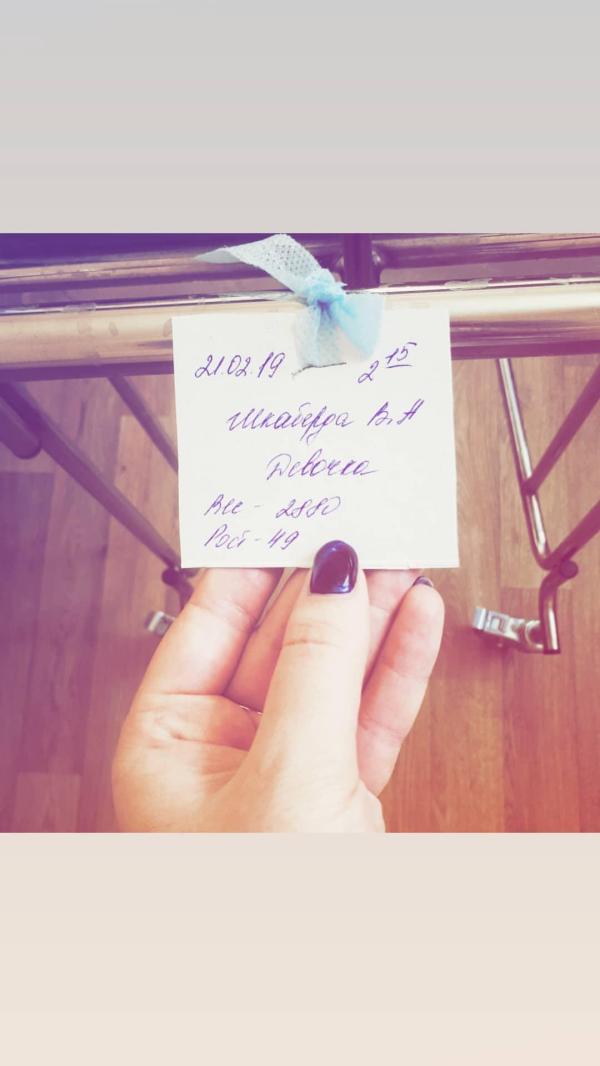 21.02.19 2 15
Шкаберда В.А
Девочка
Вес - 2880
Рост - 49